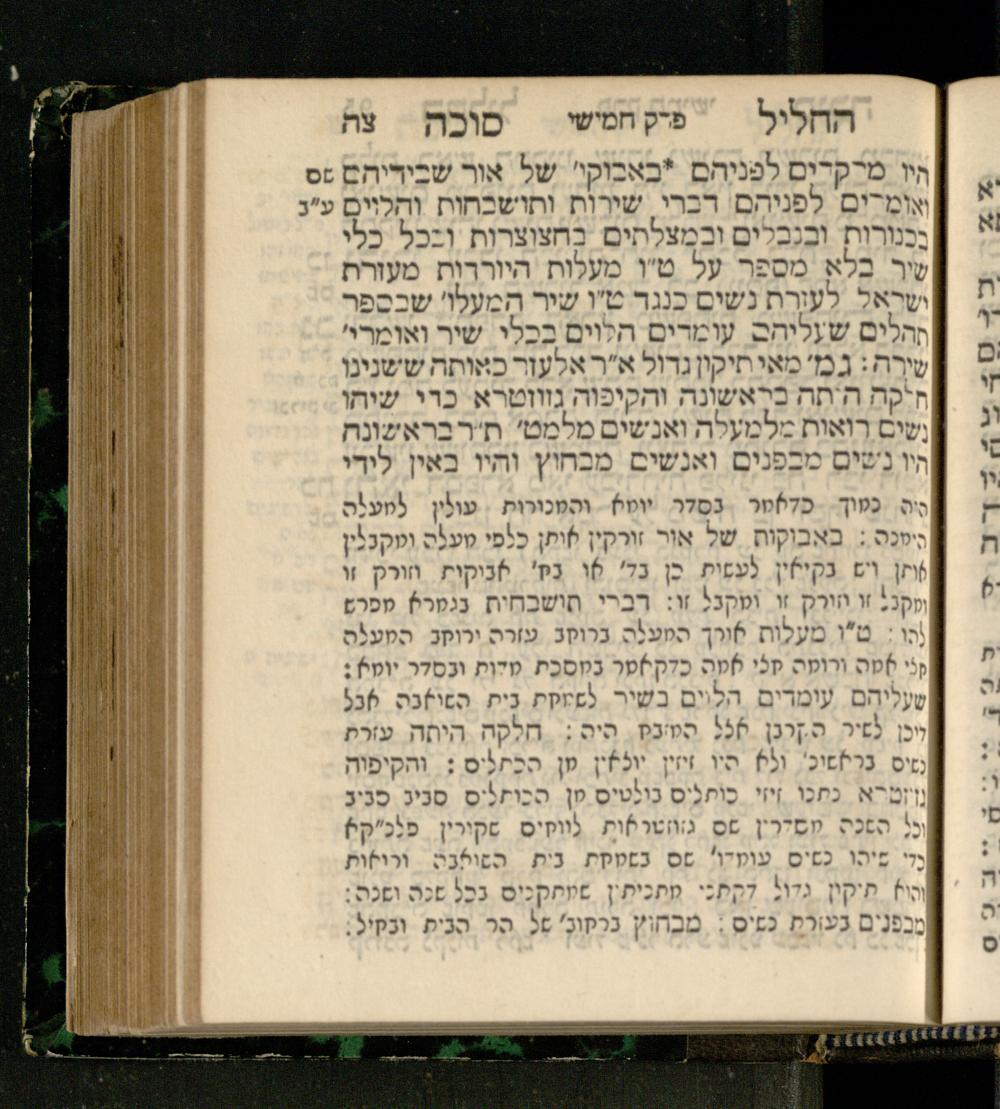 החליל פרק חמישי סוכה צה
היו מרקדים לפניהם *באבוקי׳ של אור שבידיהם שם
ואומרים לפניהם דברי שירות ותושבחות והלוים ע״ב
בכנורות ובנבלים ובמצלתים בחצוצרות ובכל כלי
שיר בלא מספר על ט״ו מעלות היורדות מעזרת
ישראל לעזרת נשים כנגד ט״ו שיר המעלו׳ שבספר
תהלים שעליהם עומדים הלוים בכלי שיר ואומרי׳
שירה : גמ׳ מאי תיקון גדול א״ר אלעזר כאותה ששנינו
חלקה היתה בראשונה והקיפוה גזוזטרא כדי שיהו
נשים רואות מלמעלה ואנשים מלמט׳ ת״ר בראשונה
היו נשים מבפנים ואנשים מבחוץ והיו באין לידי
היה נמוך כדאמר בסדר יומא והמנורות עולין למעלה
הימנה : באבוקות של אור זורקין אותן כלפי מעלה ומקבלין
אותן ויש בקיאין לעשות כן בד׳ או בח׳ אבוקות וזורק זו
ומקבל זו וזורק זו ומקבל זו : דברי תושבחות בגמרא מפרש
להו : ט״ו מעלות אורך המעלה ברוחב עזרה ירוחב המעלה
חלי אמה ורומה חלי אמה כדקאמר במסכת מדות ובסדר יומא :
שעליהם עומדים הלוים בשיר לשמחת בית השואבה אבל
דוכן לשיר הקרבן אצל המזבח היה : חלקה היתה עזרת
נשים בראשונ׳ ולא היו זיזין יוצאין מן הכתלים : והקיפוה
גזוזטרא נתנו זיזי כותלים בולטים מן הכותלים סביב סביב
וכל השנה מסדרין שם גזוזטראות לווחים שקורין פלנ״קא
כדי שיהו נשים עומדו׳ שם בשמחת בית השואבה ורואות
והוא תיקון גדול דקתני מתניתין שמתקנים בכל שנה ושנה :
מבפנים בעזרת נשים : מבחוץ ברחוב׳ של הר הבית ובחיל :